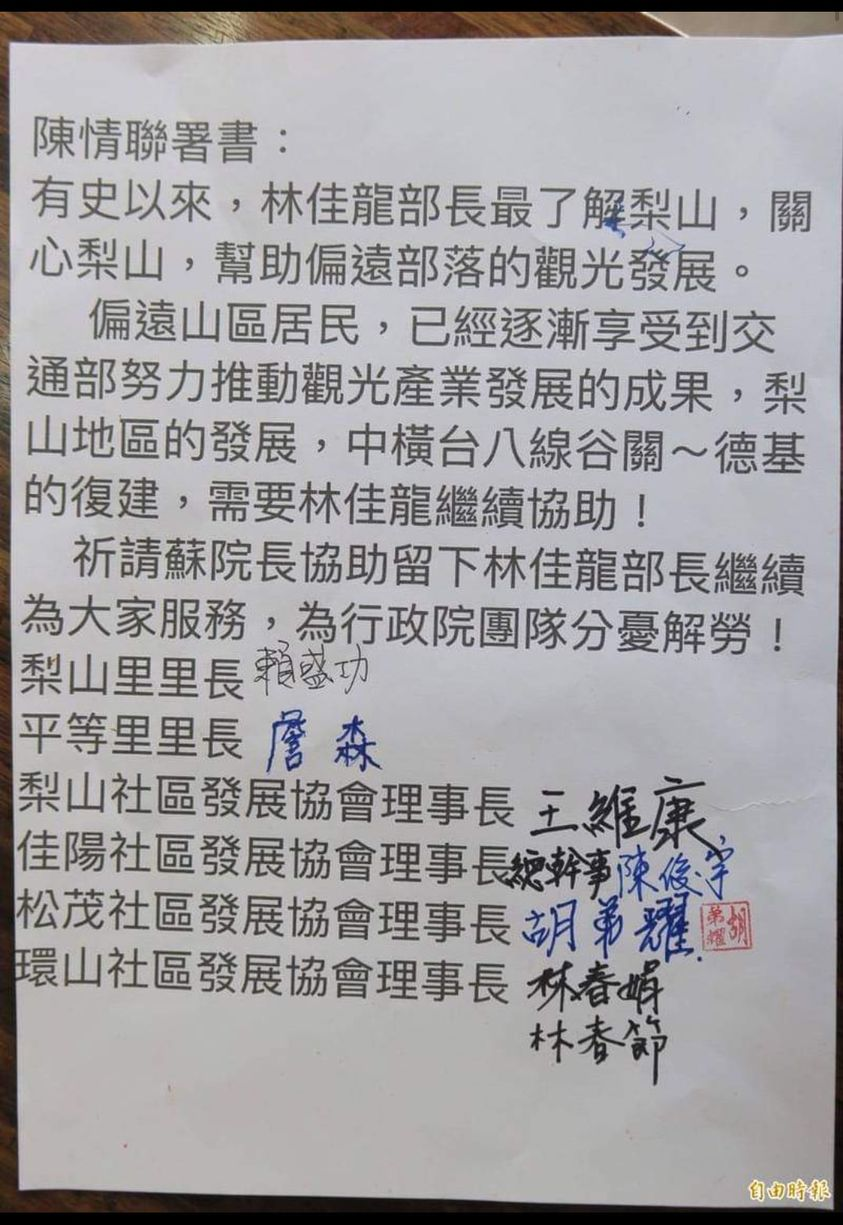 陳情聯署書：
有史以來，林佳龍部長最了解梨山，關
心梨山，幫助偏遠部落的觀光發展。
偏遠山區居民，已經逐漸享受到交
通部努力推動觀光產業發展的成果，梨
山地區的發展，中橫台八線谷關～德基
的復建，需要林佳龍繼續協助！
祈請蘇院長協助留下林佳龍部長繼續
為大家服務，為行政院團隊分憂解勞！
梨山里里長 賴盛功
平等里里長 詹森
梨山社區發展協會理事長 王維康
佳陽社區發展協會理事長 總幹事 陳俊宇
松茂社區發展協會理事長 胡弟耀 胡弟耀
環山社區發展協會理事長 林春娟
林春節
自由時報